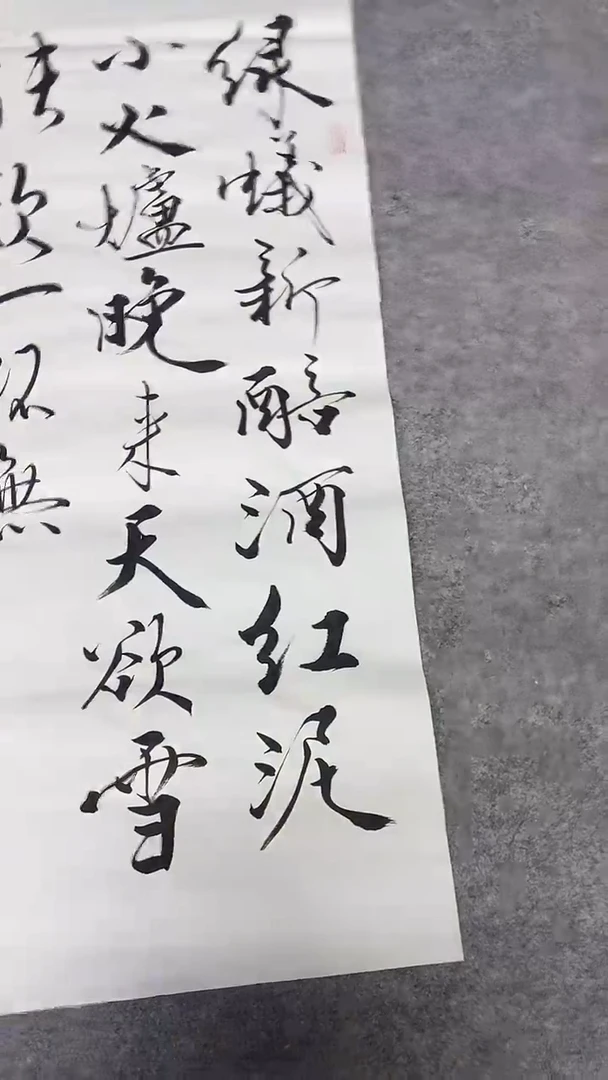 绿蟻新醅酒红泥
小火爐晚来天欲雪
能飲一杯無